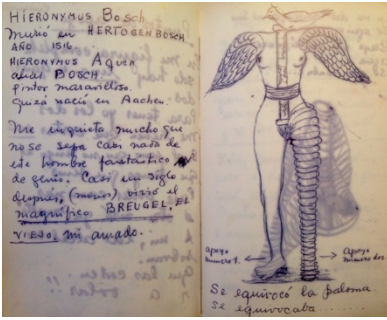 HIERONYMUS BOSCH
Murió en HERTOGENBOSCH
AÑO 1516.
HIERONYMUS AQUEN
alias BOSCH.
pintor maravilloso.
Quizá nació en Aachen.
Me inquieta mucho que
no se sepa casi nada de
este hombre fantástico
de genio. Casi un siglo
después, (menos) vivió el
magnífico BREUGEL, EL
VIEJO, mi amado.
apoyo
número 1.
Apoyo
número dos
Se equivocó la paloma.
Se equivocaba